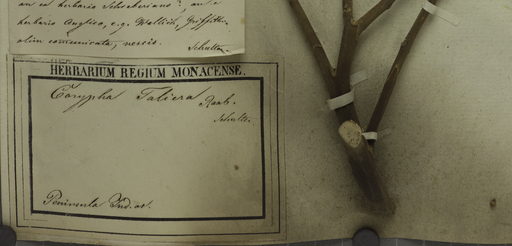 an ex herbario Schreberiano? an e
herbario Anglico, e.g. Wallich, Griffith
olim communicata, nescio.
Schultes.
HERBARIUM REGIUM MONACENSE.
Corypha Taliera Roxb.
Schultes.
Peninsula Ind. or.